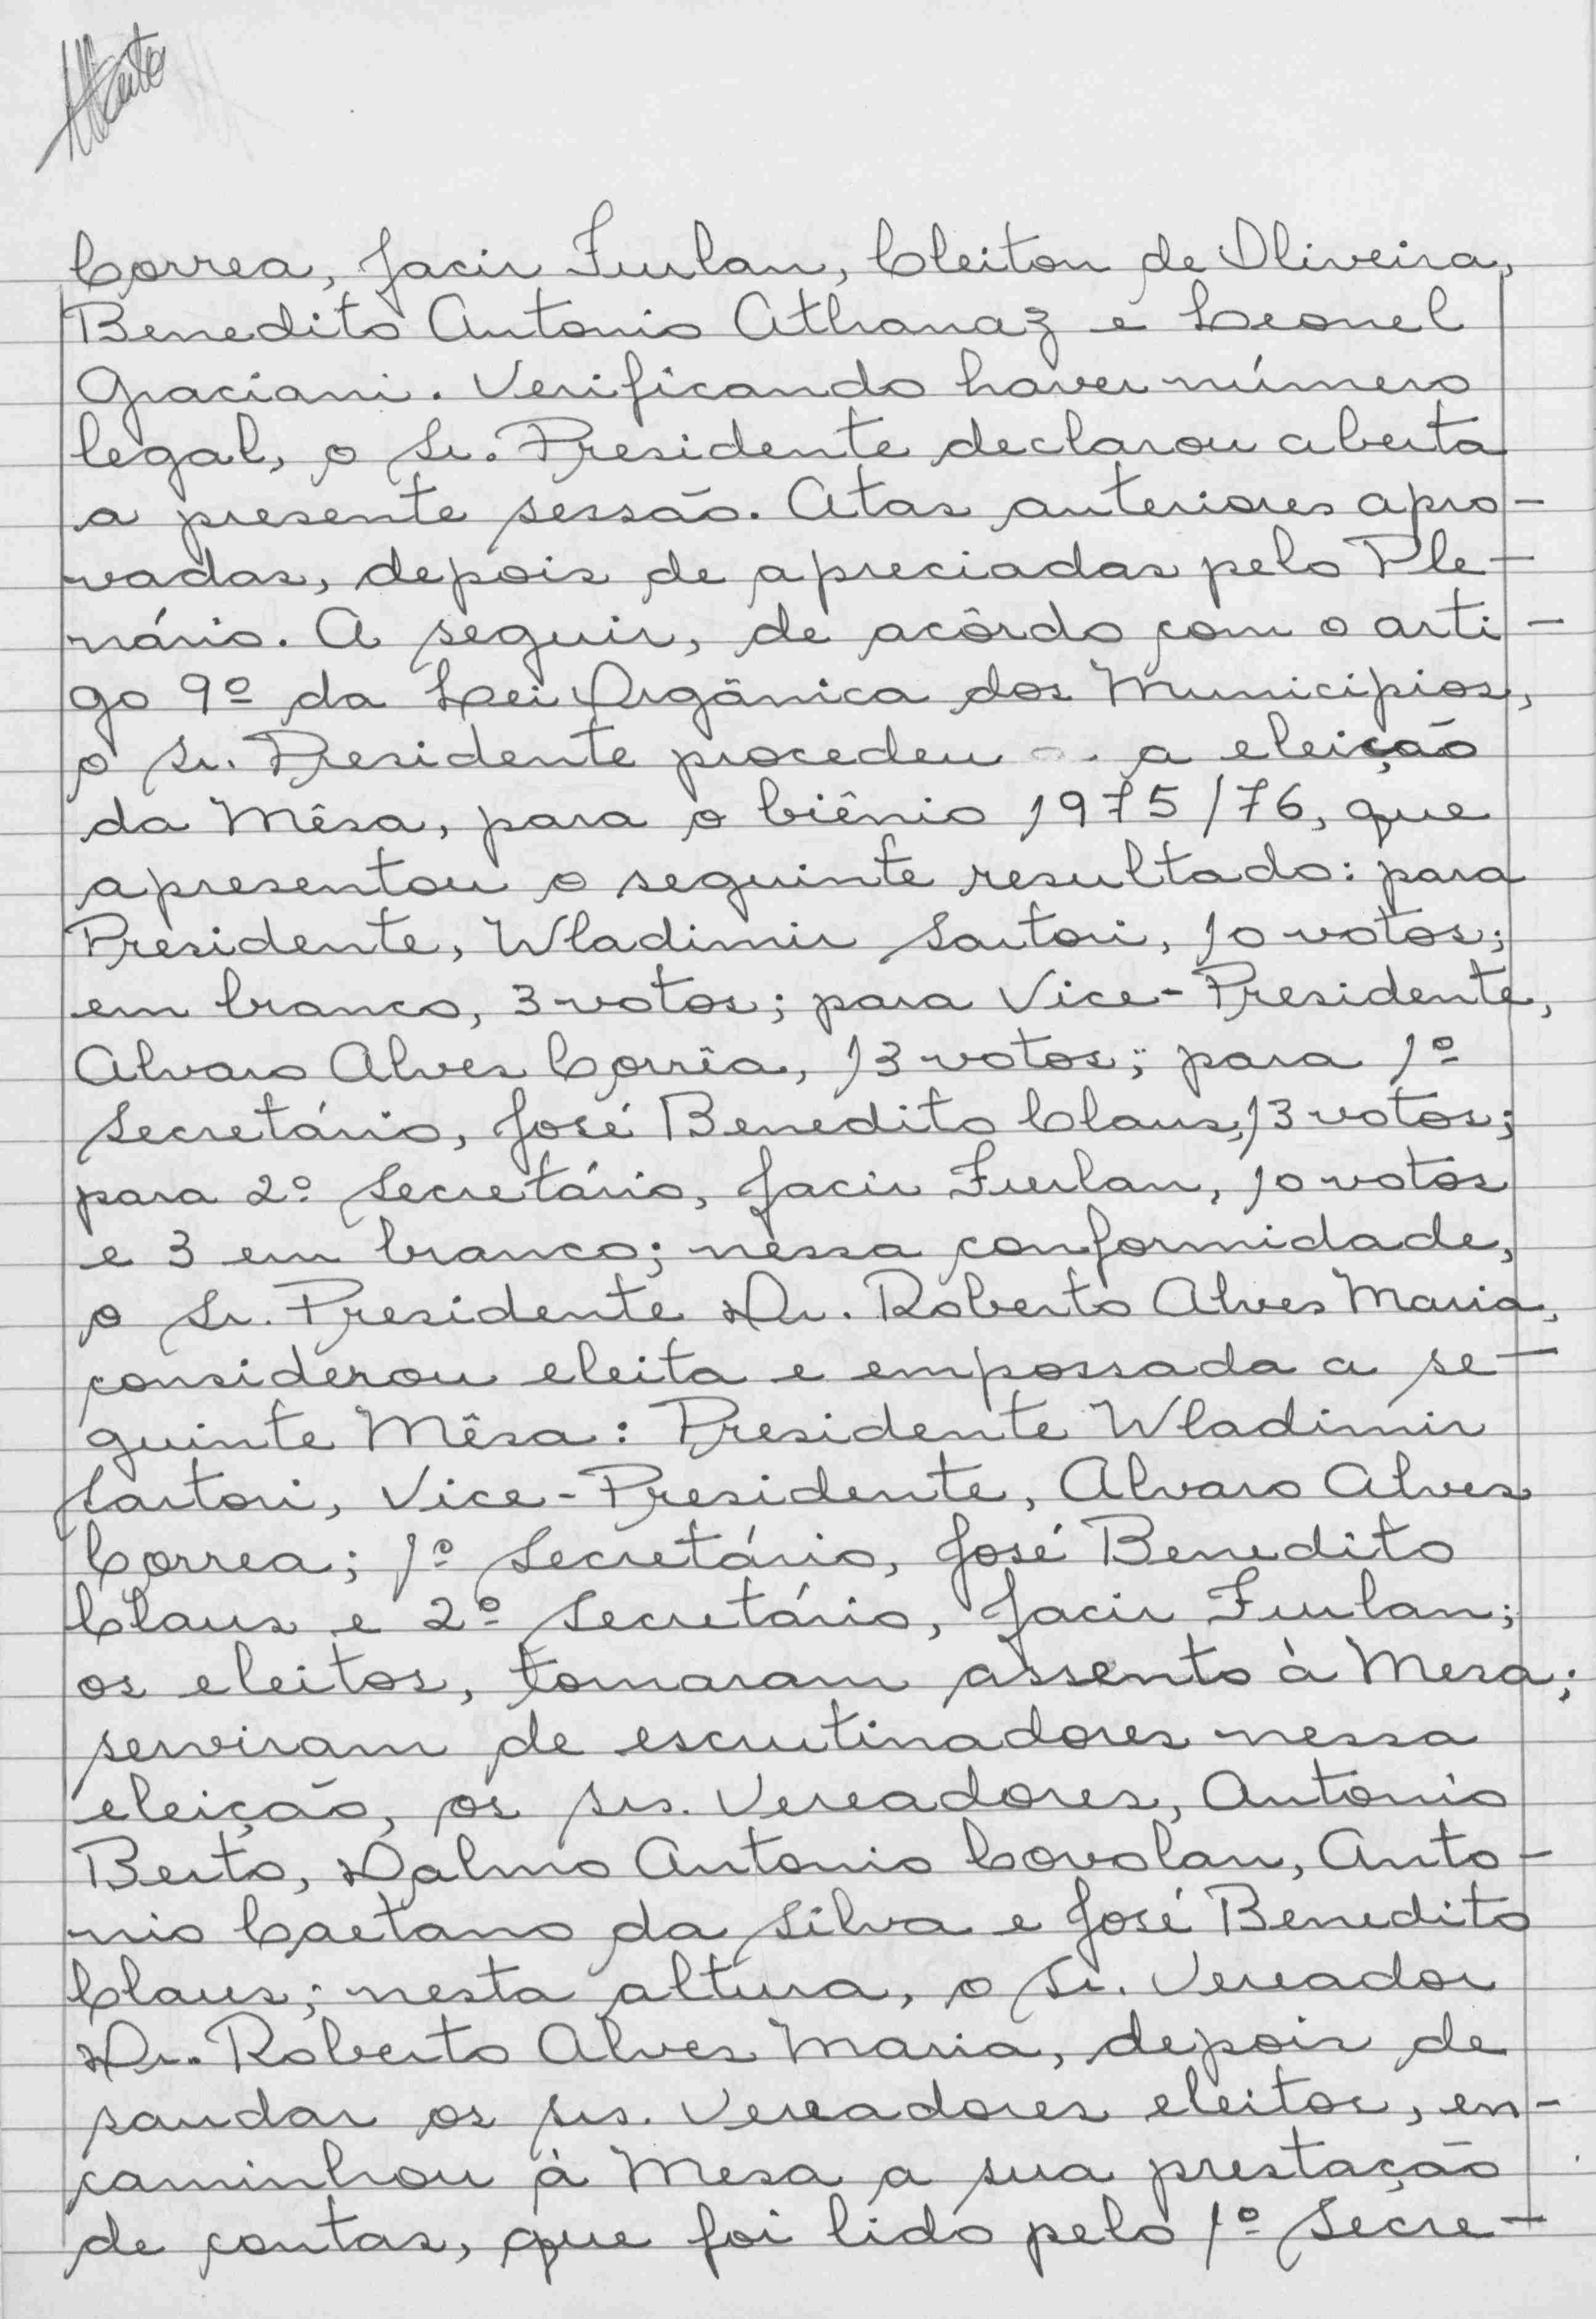 Correa, Jacir Furlan, Cleiton de Oliveira,
Benedito Antonio Athanaz e Leonel
Graciani. Verificando haver número
legal, o Sr. Presidente declarou aberta
a presente sessão. Atas anteriores apro-
vadas, depois de apreciadas pelo Ple-
nário. A seguir, de acôrdo com o arti-
go 9º da Lei Orgânica dos Municípios,
o Sr. Presidente procedeu a eleição
da Mêsa, para o biênio 1975/76, que
apresentou o seguinte resultado: para
Presidente, Wladimir Sartori, 10 votos;
em branco, 3 votos; para Vice-Presidente,
Alvaro Alves Corrêa, 13 votos; para 1º
Secretário, José Benedito Claus, 13 votos;
para 2º Secretário, Jacir Furlan, 10 votos
e 3 em branco; nessa conformidade,
o Sr. Presidente Dr. Roberto Alves Maria,
considerou eleita e empossada a se-
guinte Mêsa: Presidente Wladimir
Sartori, Vice-Presidente, Alvaro Alves
Correa; 1º Secretário, José Benedito
Claus e 2º Secretário, Jacir Furlan;
os eleitos, tomaram assento à Mesa;
serviram de escrutinadores nessa
eleição, os srs. Vereadores, Antonio
Berto, Dalmo Antonio Covolan, Anto-
nio Caetano da Silva e José Benedito
Claus; nesta altura, o Sr. Vereador
Dr. Roberto Alves Maria, depois de
saudar os srs. Vereadores eleitos, en-
caminhou à Mesa a sua prestação
de contas, que foi lido pelo 1º Secre-